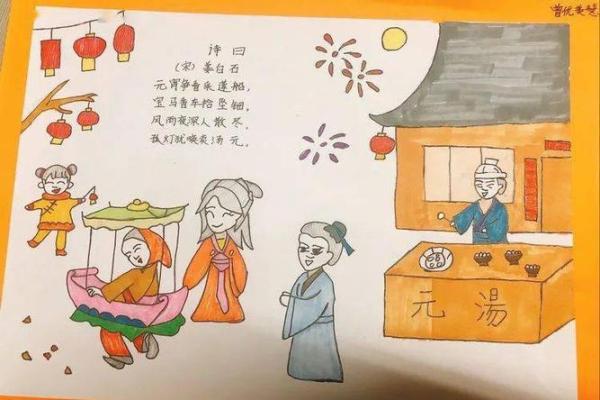 诗曰
（宋）姜白石
元宵争看采莲船，
宝马香车拾坠钿。
风雨夜深人散尽，
孤灯犹唤卖汤元。
元 湯